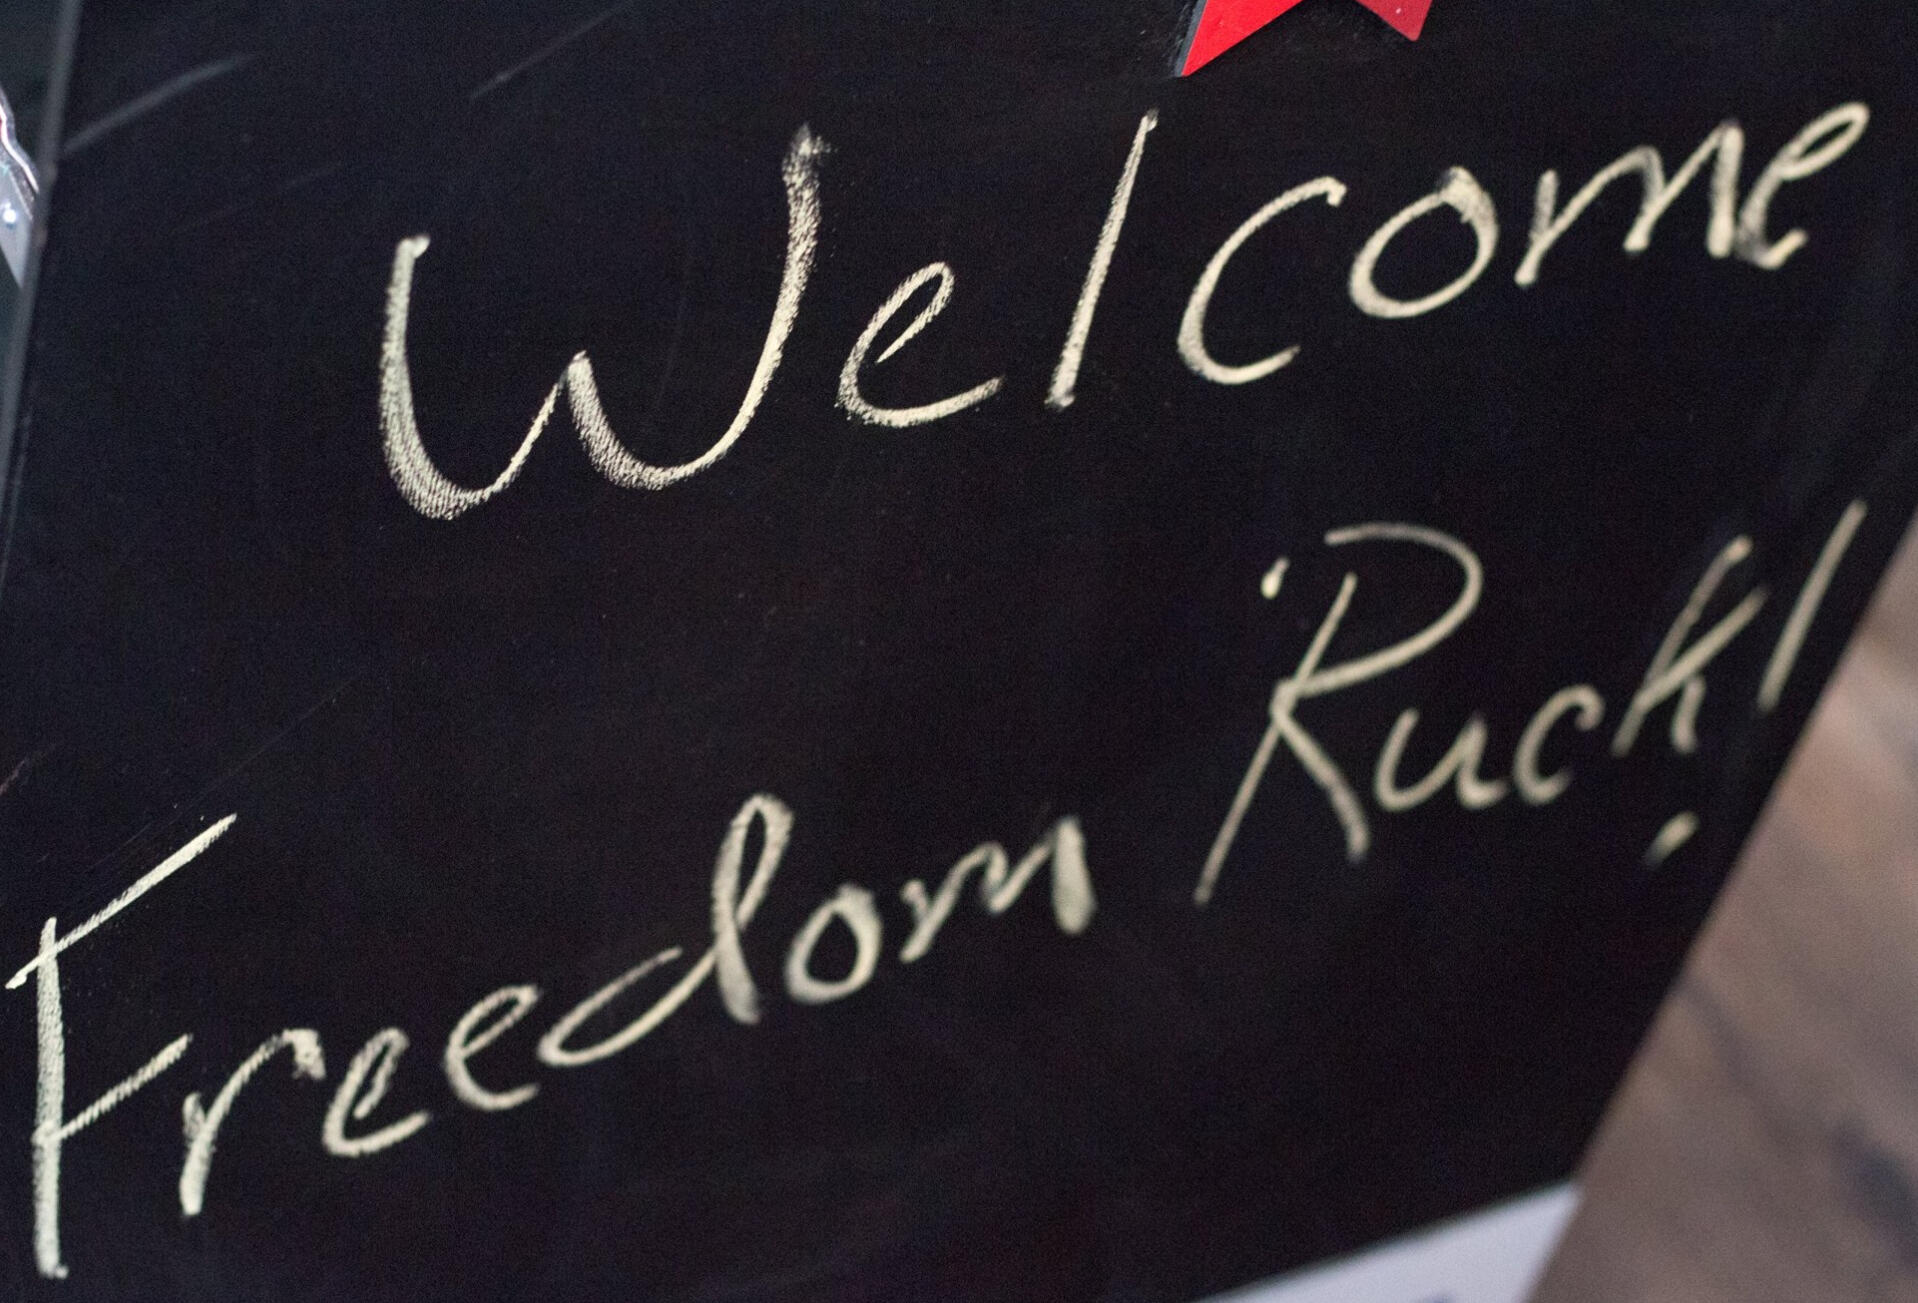 Welcome
Freedom Ruck!